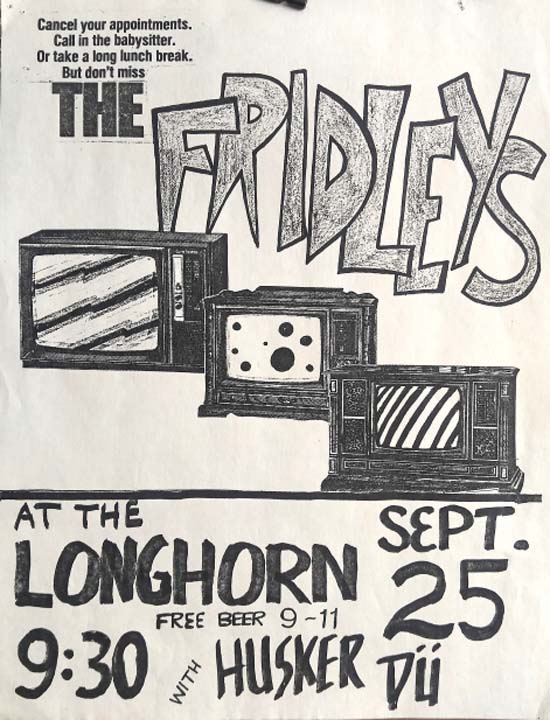 Cancel your appointments.
Call in the babysitter.
Or take a long lunch break.
But don't miss
THE FRIDLEYS
AT THE
LONGHORN
SEPT.
25
FREE BEER 9-11
9:30
WITH HUSKER DÜ